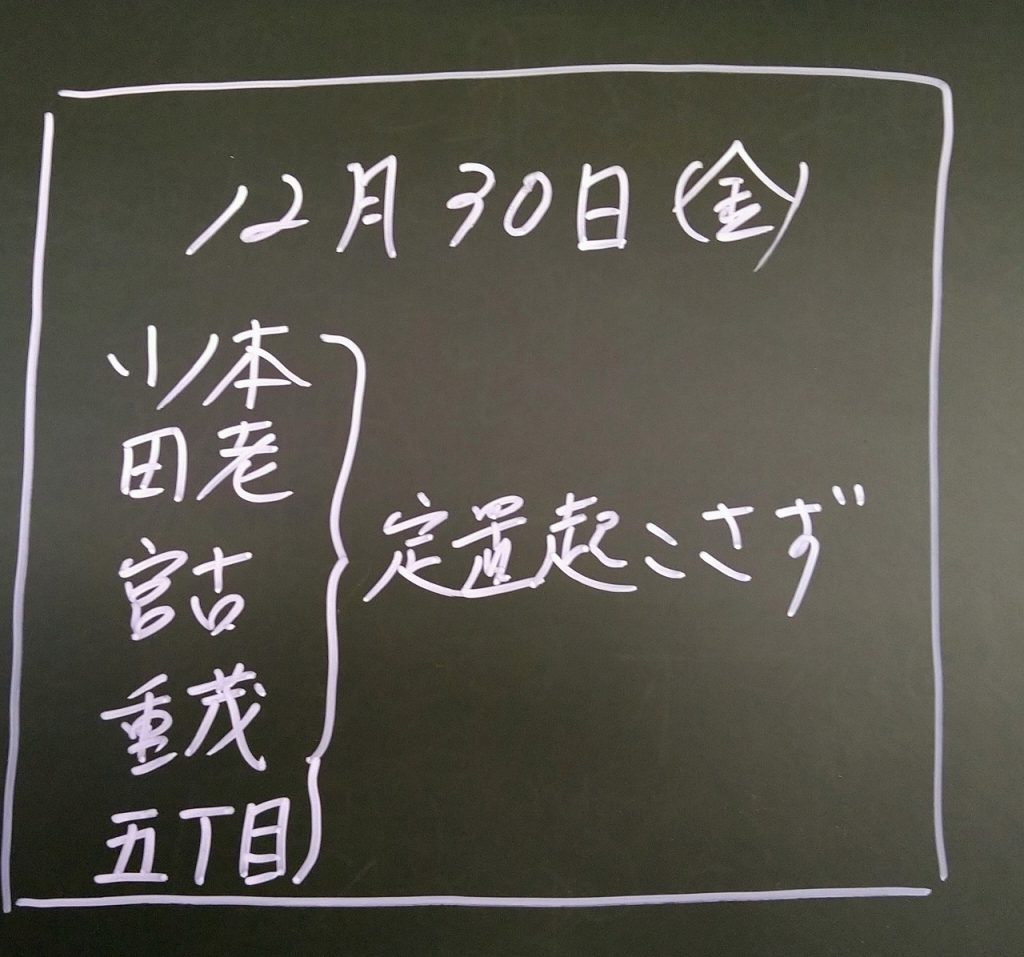 12月30日(金)
小本
田老
宮古
重茂
五丁目
定置起こさず